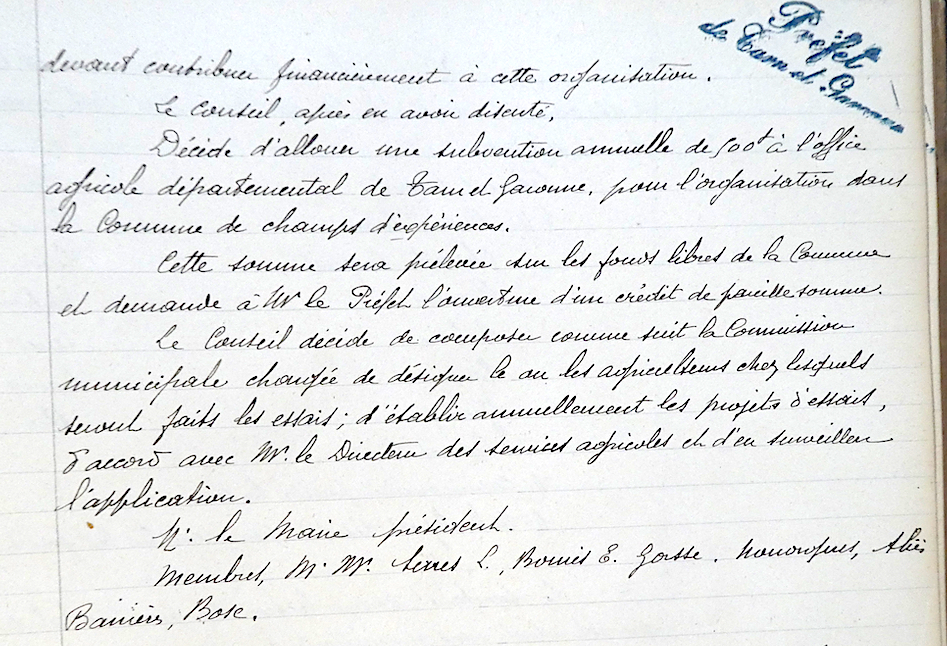 Préfet
de Tarn et Garonne
devant contribuer financièrement à cette organisation.
Le Conseil, après en avoir discuté,
Décide d'allouer une subvention annuelle de 500f à l'office
agricole départemental de Tarn et Garonne, pour l'organisation dans
la Commune de champs d'expériences.
Cette somme sera prélevée sur les fonds libres de la Commune
et demande à Mr le Préfet l'ouverture d'un crédit de pareille somme.
Le Conseil décide de composer comme suit la Commission
municipale chargée de désigner le ou les agriculteurs chez lesquels
seront faits les essais ; d'établir annuellement les projets d'essais,
d'accord avec Mr. le Directeur des services agricoles et d'en surveiller
l'application.
Mr. le Maire président.
Membres, M. Mr. Serres L., E. Gasse.
Barrière, Bosc.